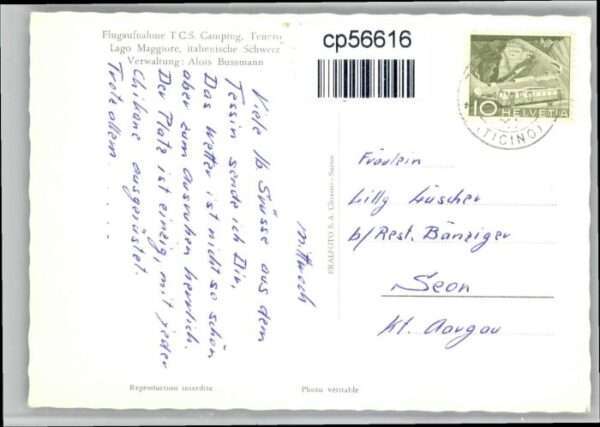 Flugaufnahme T.C.S. Camping, Tenero
Lago Maggiore, italienische Schweiz
Verwaltung: Alois Bussmann
cp56616
10 HELVETIA
(TICINO)
Mittwoch
Viele lb Grüsse aus dem
Tessin sende ich Dir,
Das Wetter ist nicht so schön
aber zum ausruhen herrlich.
Der Platz ist einzig, mit jeder
Chikane ausgerüstet.
Trotz allem . . . . .
FRALFOTO S. A.
Fräulein
Lilly Lüscher
b/Rest. Bänziger
Seon
Kt. Aargau
Reproduction interdite
Photo véritable